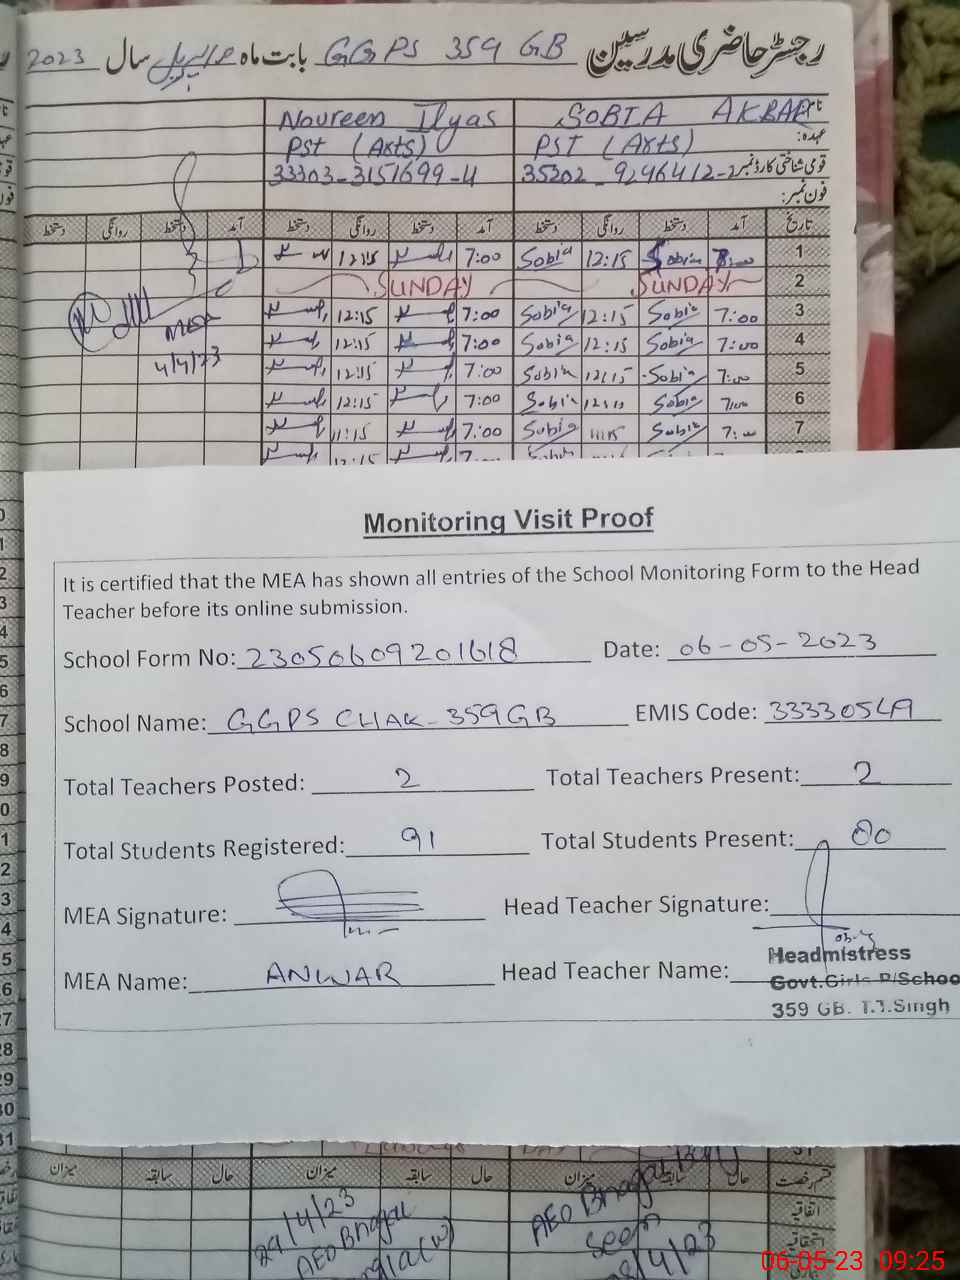 رجسٹر حاضری مدرسین GGPS 359 GB بابت ماہ اپریل سال 2023
Noureen Ilyas SOBIA AKBAR
عہدہ: PST (Arts) PST (Arts)
قومی شناختی کارڈ نمبر 33303-3151699-4 35202-9246412-2
فون نمبر:
دستخط روانگی دستخط آمد دستخط روانگی دستخط آمد دستخط روانگی دستخط آمد تاریخ
12:15 7:00 Sobia 12:15 Sobia 1
SUNDAY SUNDAY 2
12:15 7:00 Sobia 12:15 Sobia 7:00 3
MEA 12:15 7:00 Sobia 12:15 Sobia 7:00 4
4/4/23 12:15 7:00 Sobia 12:15 Sobia 7:00 5
12:15 7:00 Sobia Sobia 7:00 6
11:15 7:00 Sobia 11:15 Sobia 7:00 7
12:15
Monitoring Visit Proof
It is certified that the MEA has shown all entries of the School Monitoring Form to the Head
Teacher before its online submission.
School Form No: 23050609201618 Date: 06-05-2023
School Name: GGPS CHAK-359GB EMIS Code:
Total Teachers Posted: 2 Total Teachers Present: 2
Total Students Registered: 91 Total Students Present: 80
MEA Signature: Head Teacher Signature:
MEA Name: ANWAR Head Teacher Name:
Headmistress
Govt.Girls P/School
359 GB. T.T.Singh
میزان سابقہ حال میزان سابقہ حال میزان سابقہ حال قسم رخصت
اتفاقیہ
29/4/23 AEO Bhagat
AEO Bhagat Seen
06-05-23 09:25